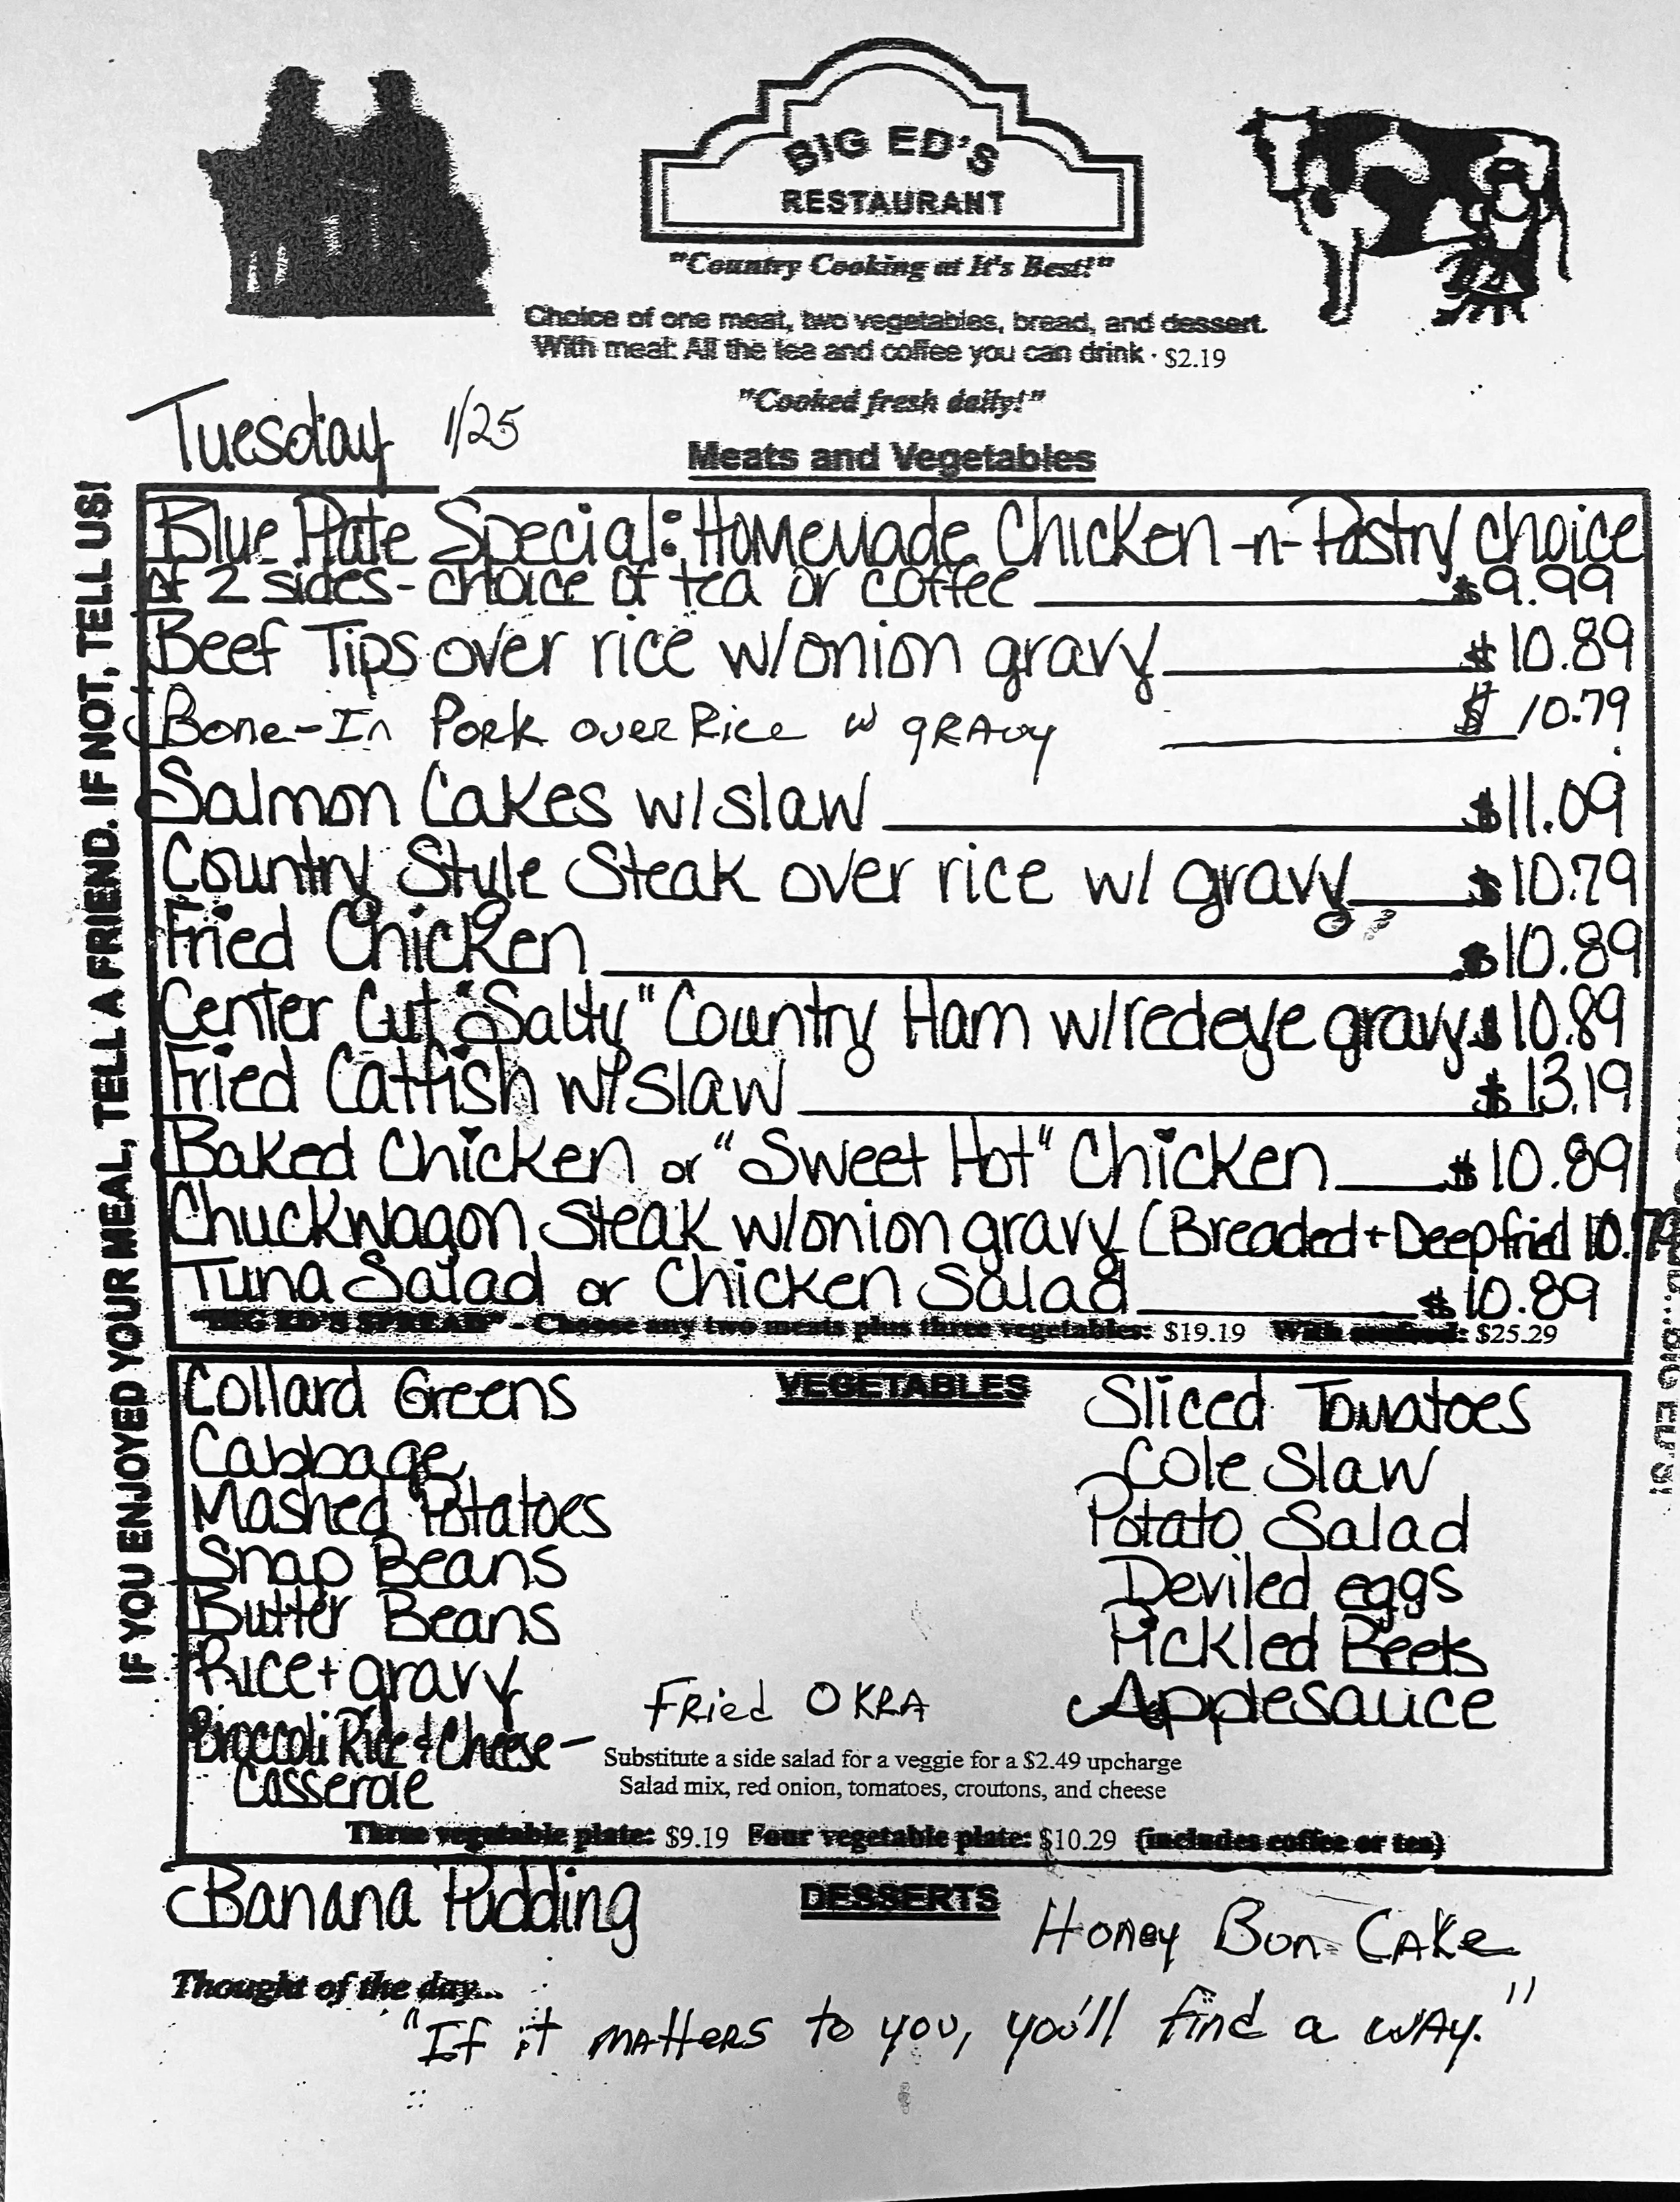 BIG ED'S
RESTAURANT
"Country Cooking at It's Best!"
Choice of one meat, two vegetables, bread, and dessert.
With meal: All the tea and coffee you can drink · $2.19
"Cooked fresh daily!"
Tuesday 1/25
Meats and Vegetables
IF YOU ENJOYED YOUR MEAL, TELL A FRIEND. IF NOT, TELL US!
Blue Plate Special: Homemade Chicken -n- Pastry choice
of 2 sides - choice of tea or coffee $9.99
Beef Tips over rice w/onion gravy $10.89
Bone-In Pork over Rice w gravy $10.79
Salmon Cakes w/slaw $11.09
Country Style Steak over rice w/ gravy $10.79
Fried Chicken $10.89
Center Cut "Salty" Country Ham w/redeye gravy $10.89
Fried Catfish w/slaw $13.19
Baked Chicken or "Sweet Hot" Chicken $10.89
Chuckwagon Steak w/onion gravy (Breaded + Deep fried 10.79
Tuna Salad or Chicken Salad $10.89
"BIG ED'S SPREAD" - Choose any two meats plus three vegetables: $19.19 With seafood: $25.29
VEGETABLES
Collard Greens
Cabbage
Mashed Potatoes
Snap Beans
Butter Beans
Rice + gravy
Broccoli Rice & Cheese -
Casserole
Fried OKRA
Sliced Tomatoes
Cole Slaw
Potato Salad
Deviled eggs
Pickled Beets
Applesauce
Substitute a side salad for a veggie for a $2.49 upcharge
Salad mix, red onion, tomatoes, croutons, and cheese
Three vegetable plate: $9.19 Four vegetable plate: $10.29 (includes coffee or tea)
DESSERTS
Banana Pudding
Honey Bun Cake
Thought of the day...
"If it matters to you, you'll find a way."